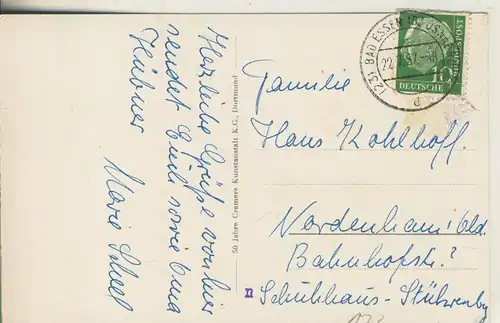 Herzliche Grüße von hier
sendet Euch sowie Oma
Hübner
Marie Scheel
50 Jahre Cramers Kunstanstalt K.G., Dortmund
(23) BAD ESSEN
22.
d
DEUTSCHE
BUNDESPOST
10
Familie
Hans Kohlhoff.
Nordenham i/Old.
Bahnhofstr.?
Schuhhaus-